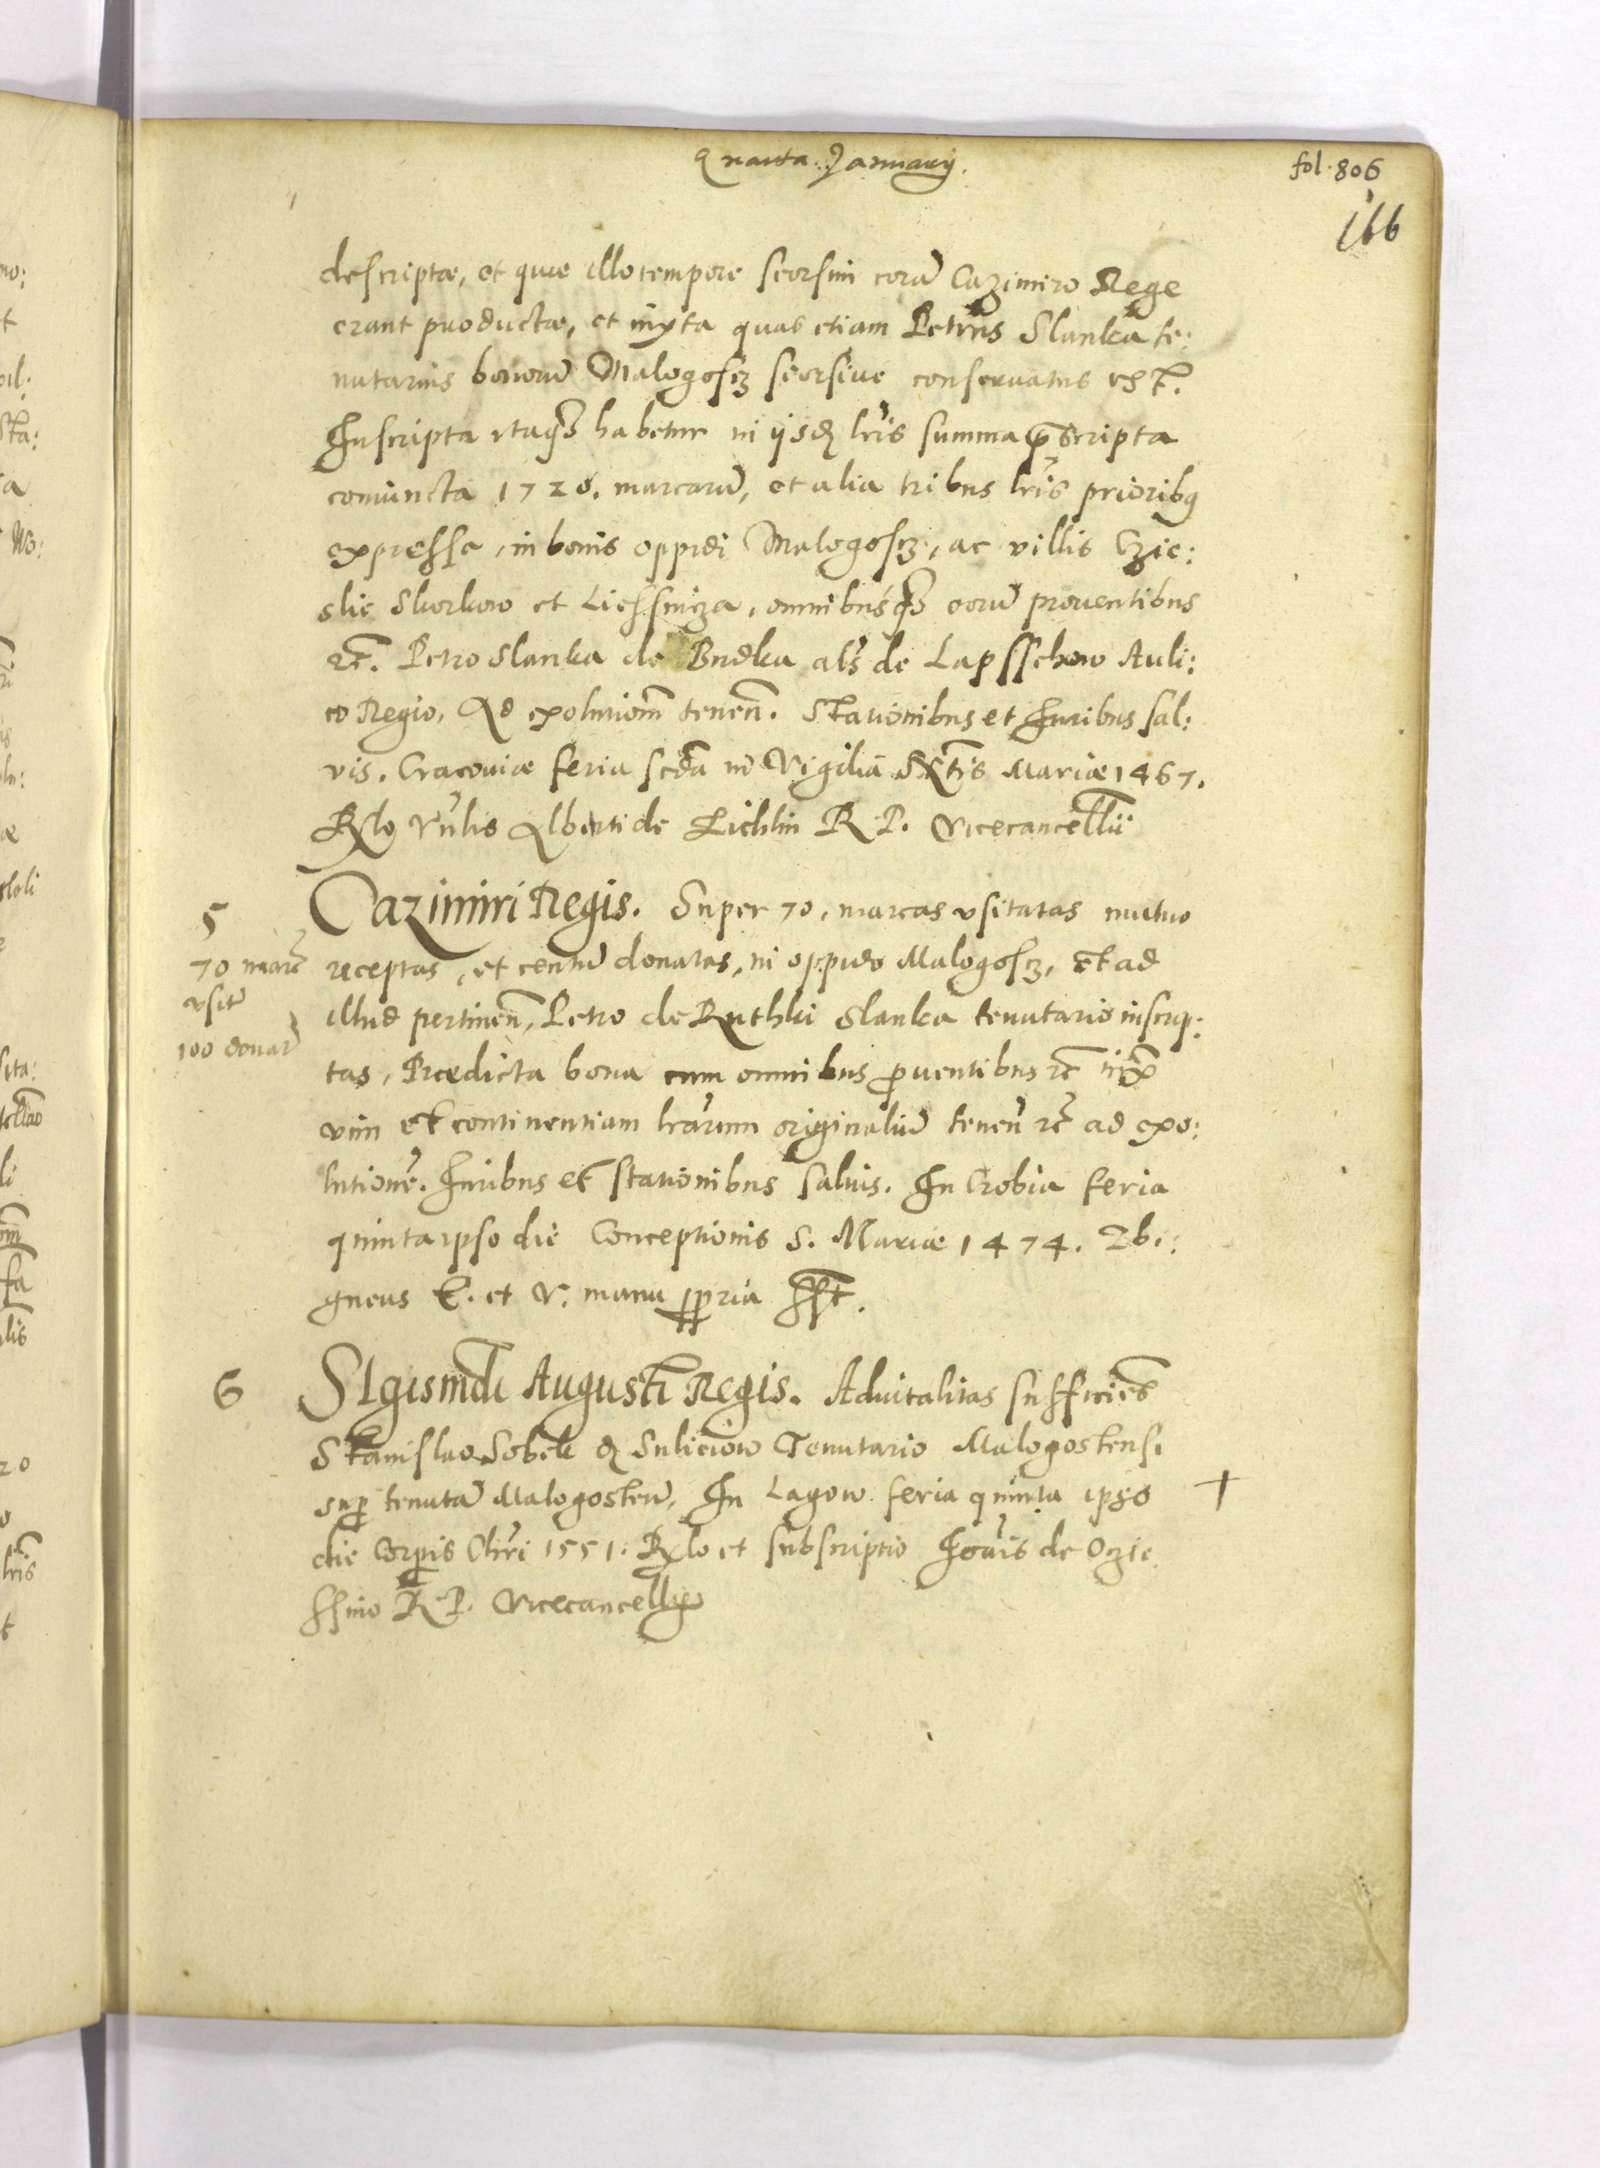 Quarta Januarij.
fol. 806
166
descriptæ, et quæ illo tempore seorsim corā Cazimiro Rege
erant productæ, et iuxta quas etiam Petrus Slanka te:
nutarius bonorū Malogoscz seorsive conservatus est.
Inscripta itaqз habetur in ijsd lr̄is summa p̄scripta
coniuncta 1720. marcarū, et alia tribus lr̄is prioribꝰ
expressa, in bonis oppidi Malogoscz, ac villis Czie:
slie Skorkow et Liessnicza, omnibusqз eorū proventibus
etc. Petro Slanka de Budka als de Lapsschow Auli:
co Regio, Ad exolutionm̄ tenen̄. Stationibus et Iuribus sal:
vis. Cracoviæ feria scd̄a in Vigilia Mariæ 1467.
Rlō Vn̄lis Alberti de Zichlin R. P. Vicecancellij
5
70 marc
usit
100 donat
Cazimiri Regis. Super 70, marcas usitatas mutuo
receptas, et centū donatas, in oppido Malogoscz, et ad
illud pertinen̄, Petro de Ruthki Slanka tenutario inscrip:
tas, Prædicta bona cum omnibus ꝓventibus etc iuxta
vim et continentiam lrārum originaliū tenen̄ etc ad exo:
lutionē. Iuribus et stationibus salvis. In Crobia feria
quinta ipso die Conceptionis S. Mariæ 1474. Zbi:
gneus E. et V. manu ꝓpria sst.
6
Sigismdi Augusti Regis. Advitalitas sufficiēs
Stanislao Sobek d Suliciow Tenutario Malogostensi
sup tenutā Malogosten̄, In Lagow feria quinta ipso
+
die Corpis Chr̄i 1551. Rlō et subscriptio Joān̄is de Oczie
ssino R. P. Vicecancellij